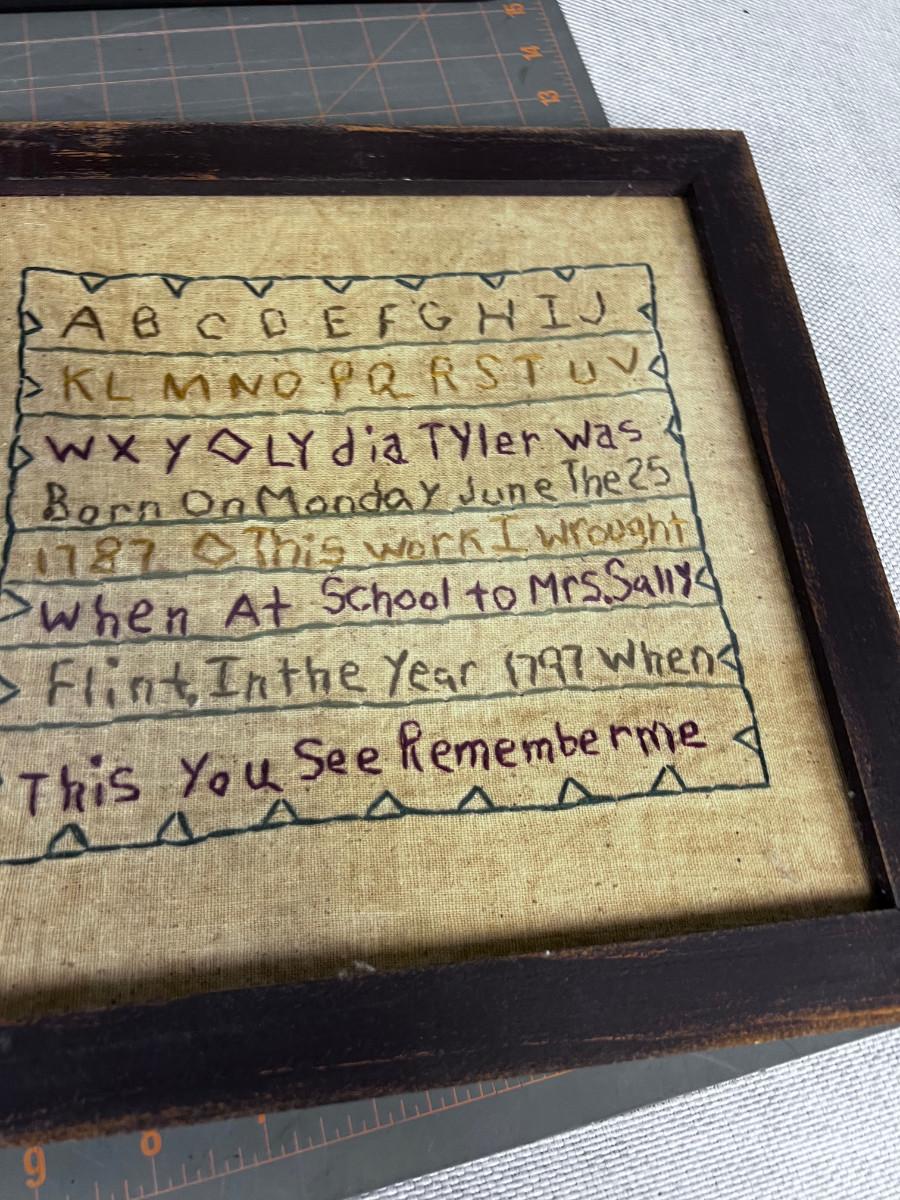 15
14
13
A B C D E F G H I J
K L M N O P Q R S T U V
W X Y ◇ LYdia TYler was
Born On Monday June The 25
1787 ◇ This work I wrought
When At School to Mrs. Sally
Flint, In the Year 1797 When
This You See Remember me
9 8